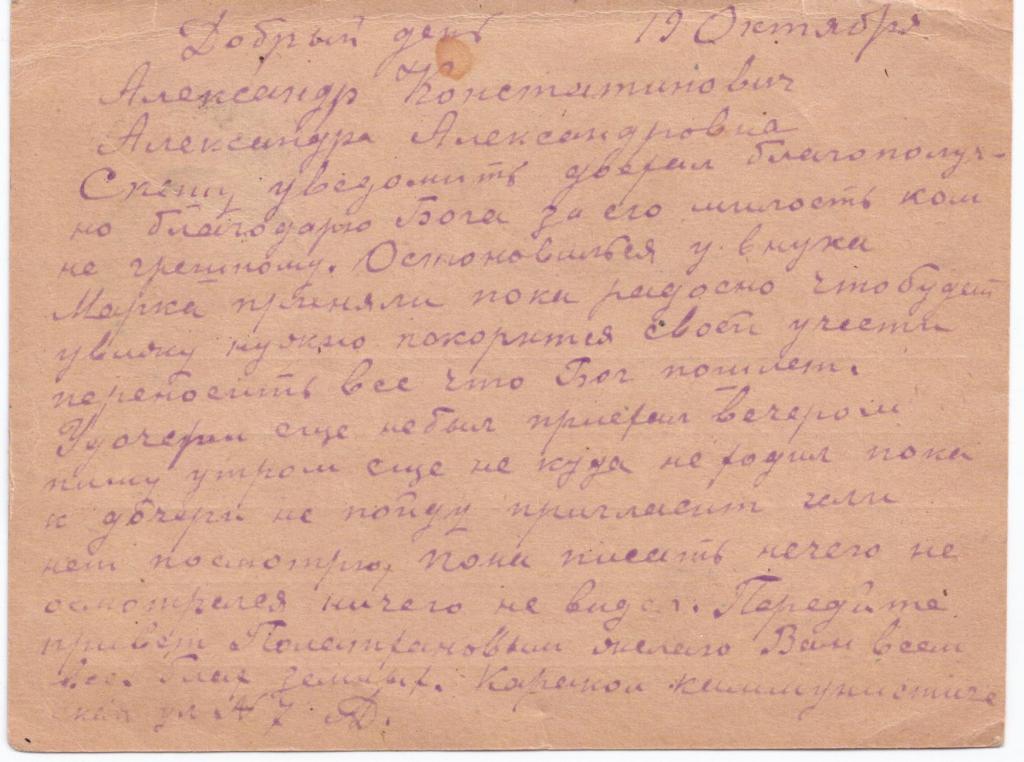 Добрый день 19 Октября
Александр Констатинович
Александра Александровна
Спешу уведомить доехал благополуч-
но благодарю Бога за его милость ком
не грешному. Остоновилься у внука
Марка приняли пока радосно чтобудет
увижу нужно покорится своей участи
переносить все что Бог пошлет.
Удочери еще небыл приехал вечером
пишу утром еще не куда неходил пока
к дочери не пойду пригласит или
нет посмотрю, Пока писать нечего не
осмотрелся ничего не видел. Передайте
привет желаю Вам всем
все. благ земных. Каракол каммунистиче
ская ул № 7 АД.